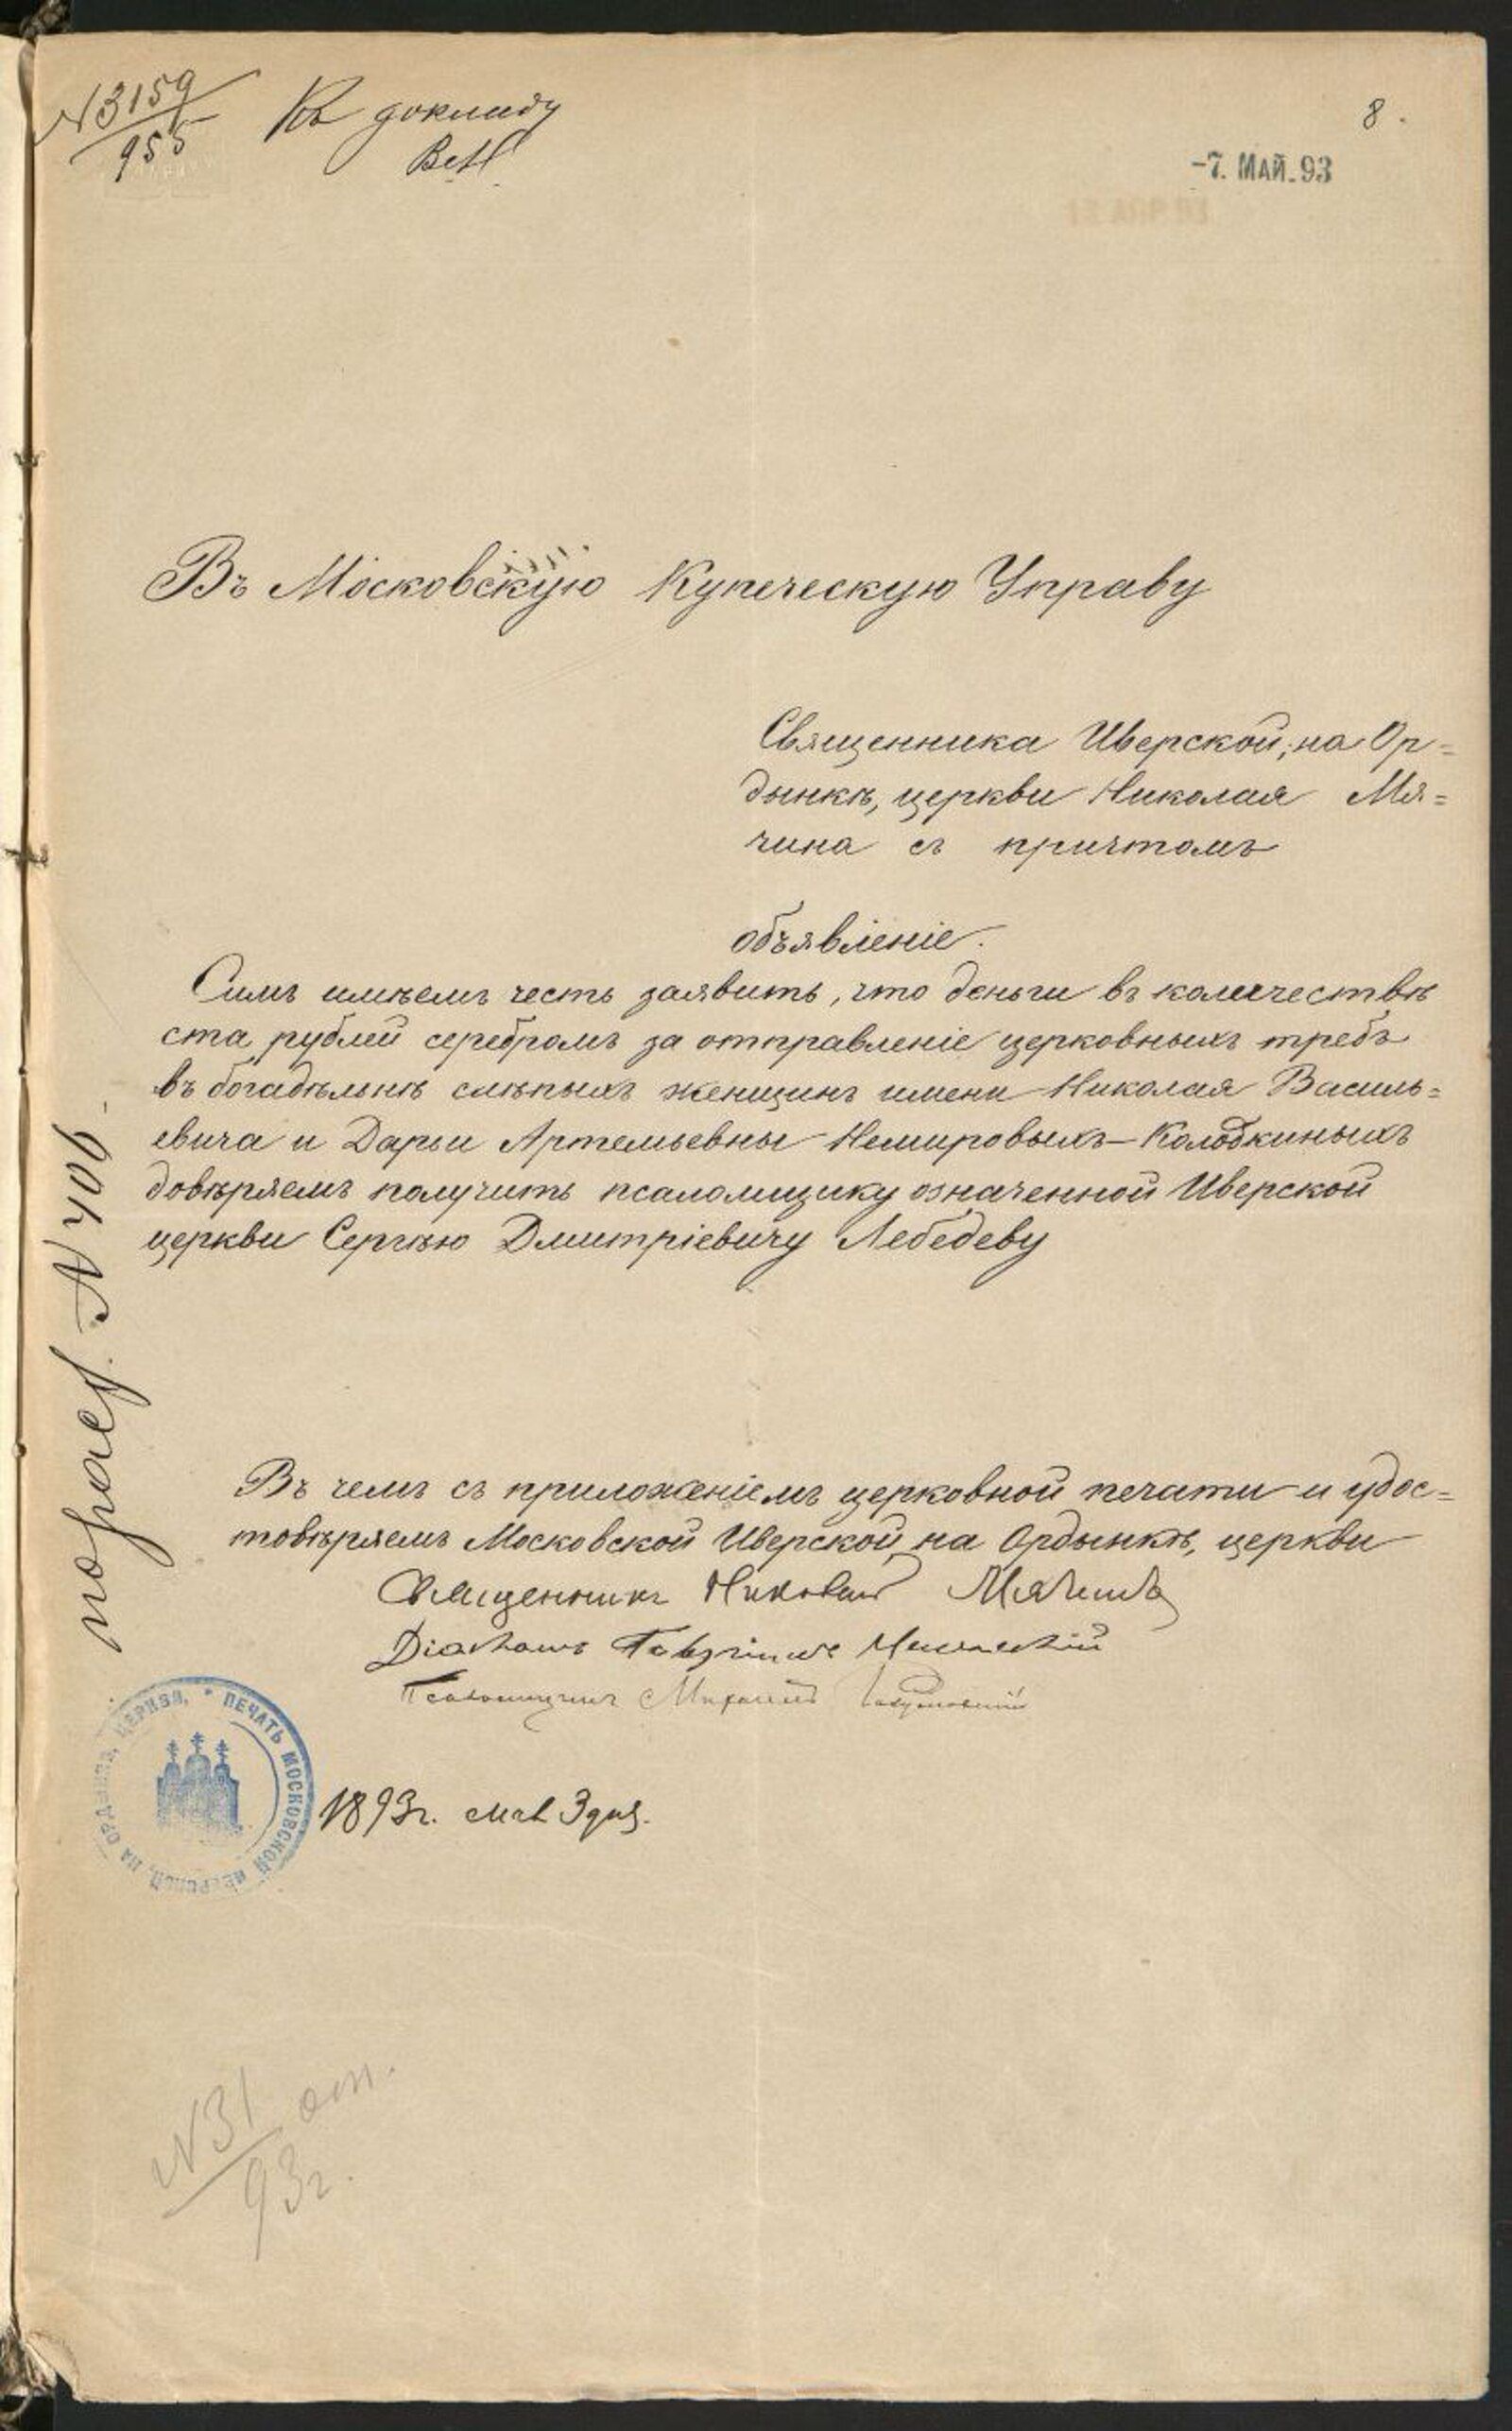 № 3159/955 Къ докладу
8.
-7. МАЙ. 93
Въ Московскую Купеческую Управу
Священника Иверской, на Ор=
дынкѣ, церкви Николая Мя=
чина съ причтомъ
объявленіе.
Симъ имѣемъ честь заявить, что деньги въ количествѣ
ста рублей серебромъ за отправленіе церковныхъ требъ
въ богадѣльнѣ слѣпыхъ женщинъ имени Николая Василь=
евича и Дарьи Артемьевны Немировыхъ-Колодкиныхъ
довѣряемъ получить псаломщику означенной Иверской
церкви Сергѣю Дмитріевичу Лебедеву
№ 406
Въ чемъ съ приложеніемъ церковной печати и удос=
товѣряемъ Московской Иверской, на Ордынкѣ, церкви
Священникъ Николай Мячинъ
Діаконъ Гавріилъ
Псаломщикъ Михаилъ
ПЕЧАТЬ МОСКОВСКОЙ ИВЕРСКОЙ, НА ОРДЫНКѢ, ЦЕРКВИ.
1893г. мая 3 дня.
№31/93г. от.